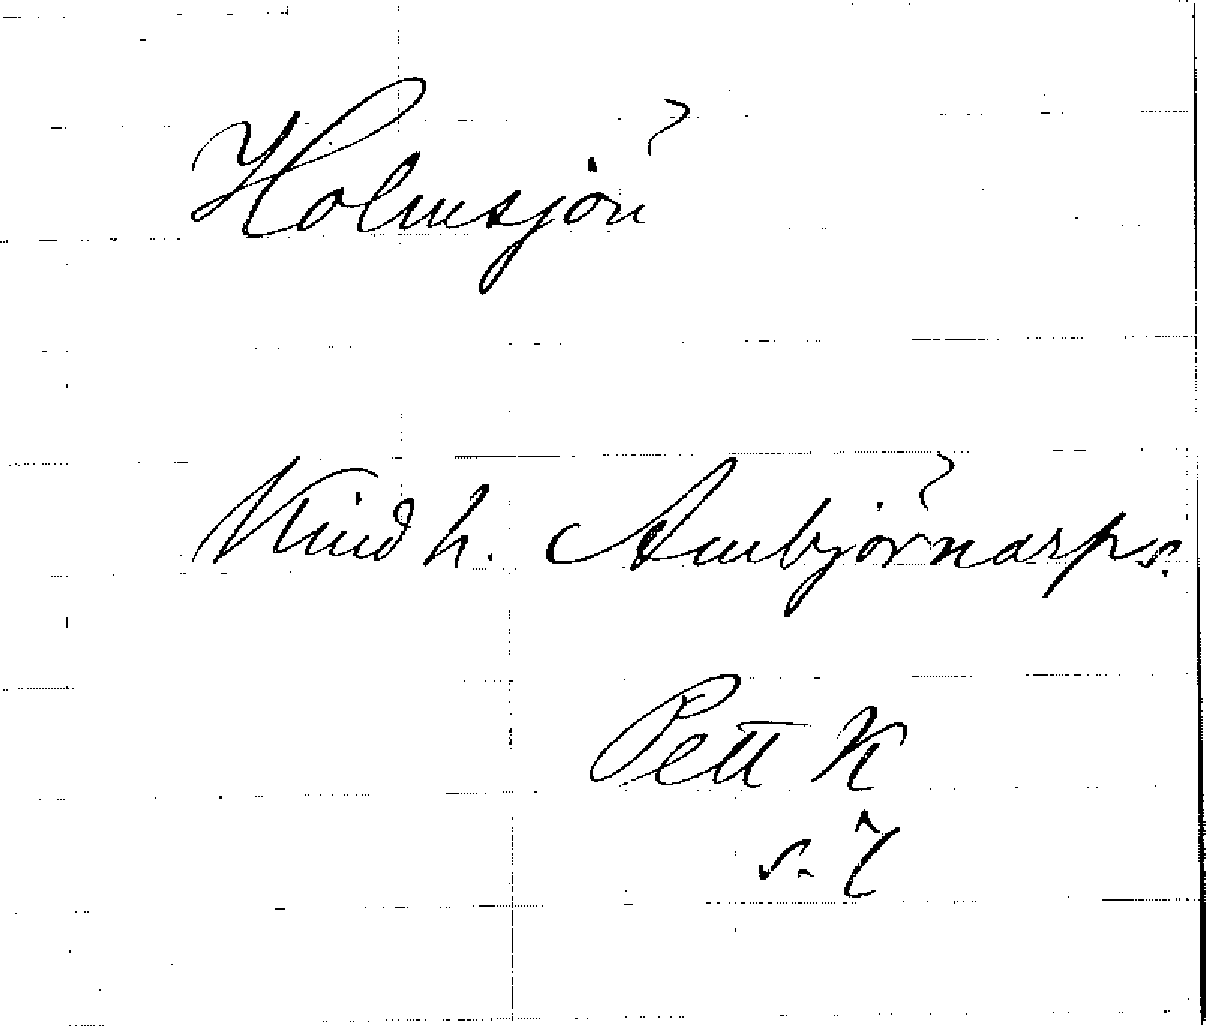 Holmsjön
Kind h. Ambjörnarps.
Pett K
s. 7